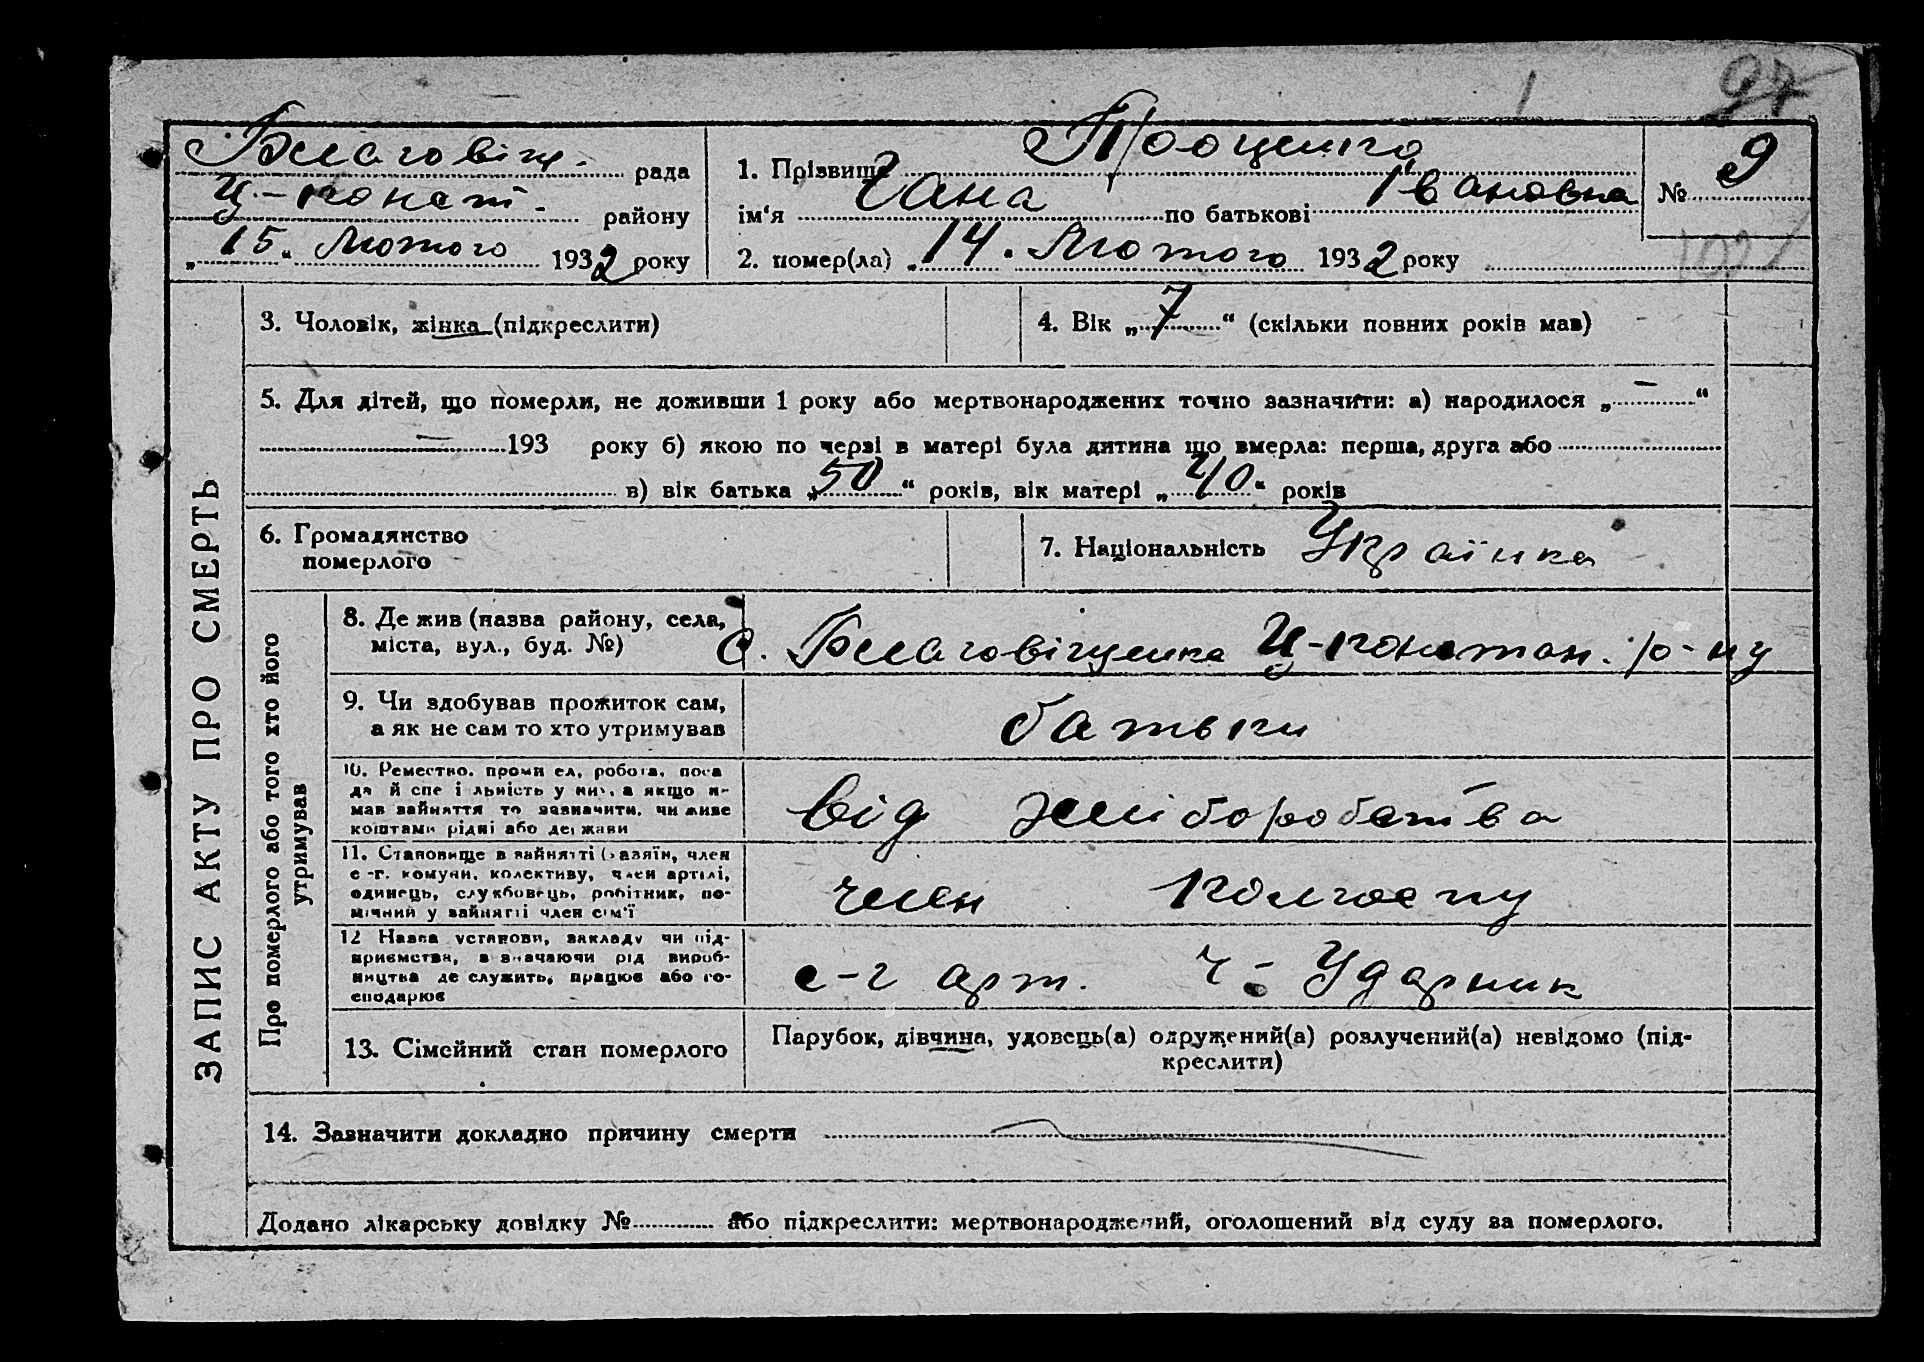 97
Благовіщ. рада
Ц-конст. району
„15“ Лютого 1932 року
1. Прізвище Проценко
ім'я Гана по батькові Івановна
№ 9
2. помер(ла) „14. Лютого 1932 року
ЗАПИС АКТУ ПРО СМЕРТЬ
3. Чоловік, жінка (підкреслити)
4. Вік „7“ (скільки повних років мав)
5. Для дітей, що померли, не доживши 1 року або мертвонароджених точно зазначити: а) народилося „—“
— 193 року б) якою по черзі в матері була дитина що вмерла: перша, друга або
в) вік батька „50“ років, вік матері „40“ років
6. Громадянство
померлого
7. Національність Українка
Про померлого або того хто його
утримував
8. Де жив (назва району, села,
міста, вул., буд. №)
С. Благовіщенка Ц-констан. р-ну
9. Чи здобував прожиток сам,
а як не сам то хто утримував
батьки
10. Ремество, промисел, робота, поса
да й спеціяльність у них, а якщо н-
мав зайняття то зазначити, чи живе
коштами рідні або держави
від хліборобства
11. Становище в зайнятті (хазяїн, член
с-г. комуни, колективу, член артілі,
одинець, службовець, робітник, по-
мічний у зайнятті член сім'ї
член колгоспу
12 Назва установи, закладу чи під-
приємства, зазначаючи рід вироб-
ництва де служить, працює або го-
сподарює
с-г арт. Ч-Ударник
13. Сімейний стан померлого
Парубок, дівчина, удовець(а) одружений(а) розлучений(а) невідомо (під-
креслити)
14. Зазначити докладно причину смерти
Додано лікарську довідку № або підкреслити: мертвонароджений, оголошений від суду за померлого.